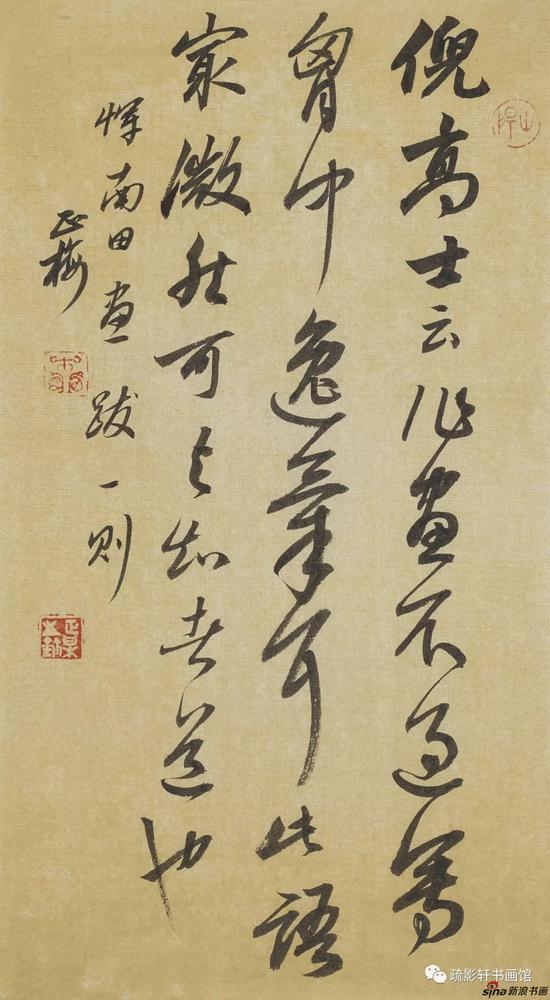 倪高士云作画不过写
胸中逸气耳此语
最微然可与知者道也
恽南田画跋一则
正梅
疏影轩书画馆
sina新浪书画